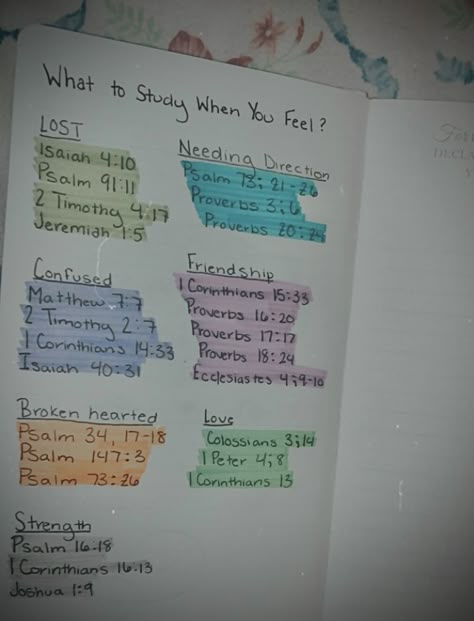 What to Study When You Feel?
LOST
Isaiah 4:10
Psalm 91:11
2 Timothy 4:17
Jeremiah 1:5
Needing Direction
Psalm 73; 21-26
Proverbs 3; 6
Proverbs 20:24
Confused
Matthew 7:7
2 Timothy 2:7
1 Corinthians 14:33
Isaiah 40:31
Friendship
1 Corinthians 15:33
Proverbs 16:20
Proverbs 17:17
Proverbs 18:24
Ecclesiastes 4;9-10
Broken hearted
Psalm 34, 17-18
Psalm 147:3
Psalm 73:26
Love
Colossians 3;14
1 Peter 4;8
1 Corinthians 13
Strength
Psalm 16-18
1 Corinthians 16-13
Joshua 1:9